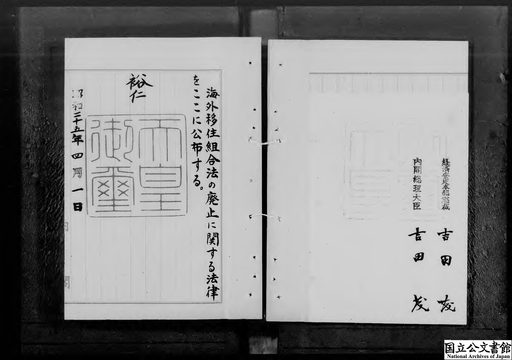 海外移住組合法の廃止に関する法律
をここに公布する。
裕仁
天皇
御璽
昭和二十五年四月一日
内閣
経済安定本部総裁 吉田茂
内閣総理大臣 吉田茂
国立公文書館
National Archives of Japan